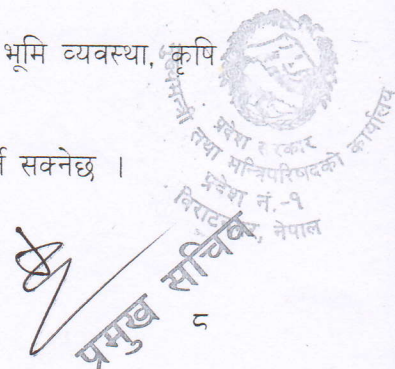 भूमि व्यवस्था, कृषि
सक्नेछ ।
प्रदेश सरकार
मन्त्री तथा मन्त्रिपरिषदको कार्यालय
प्रदेश नं.-१
विराटनगर, नेपाल
प्रमुख सचिव
८